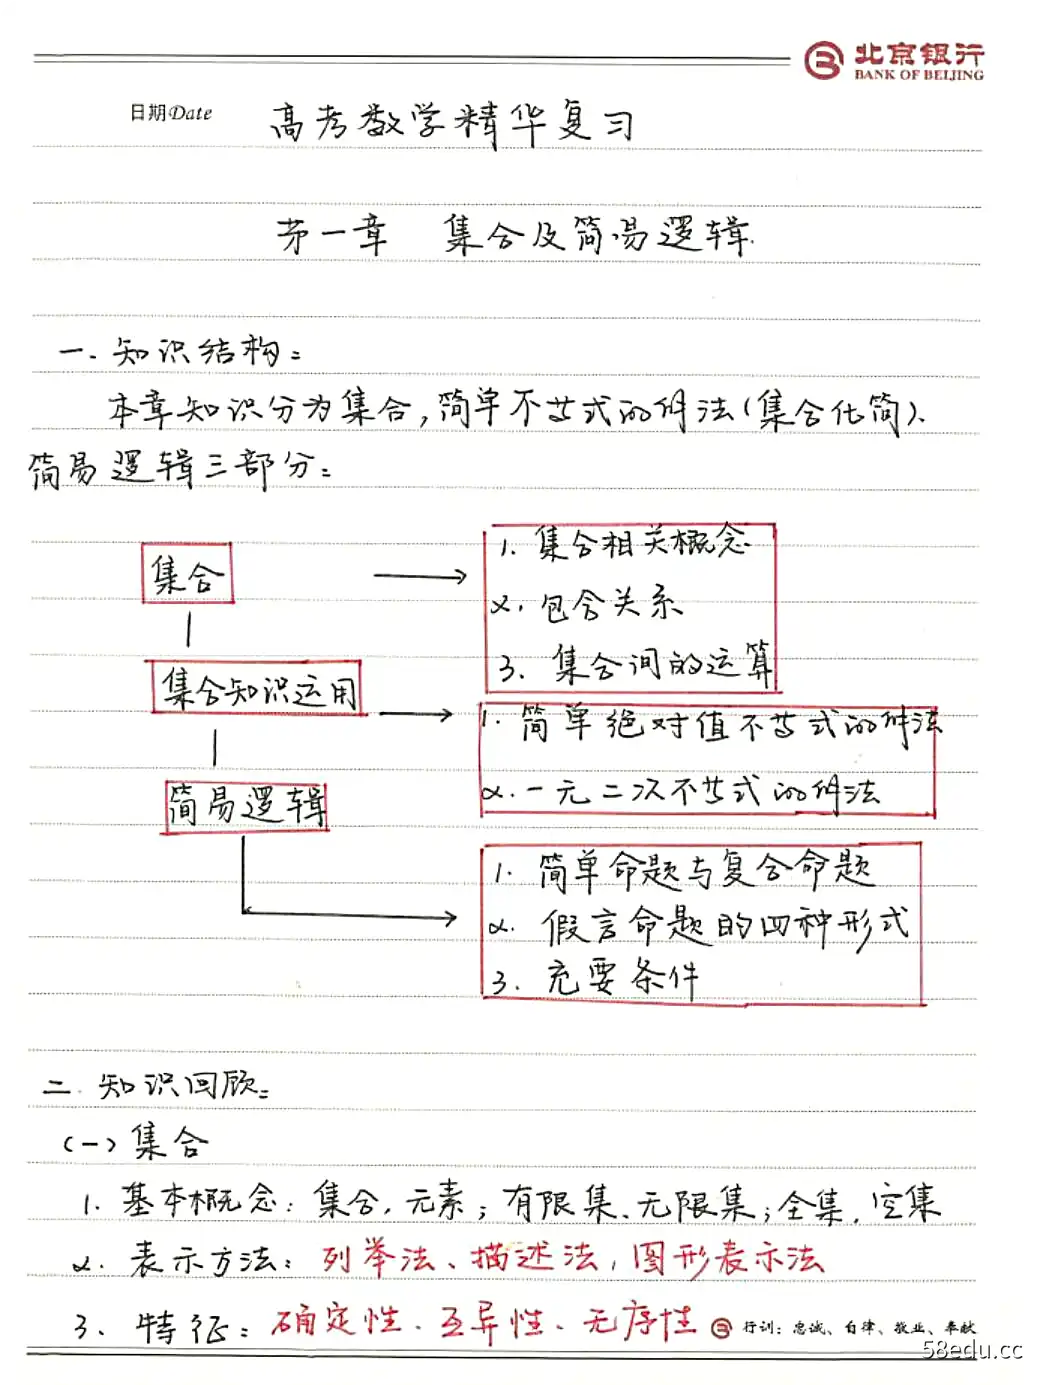 北京银行
BANK OF BEIJING
日期Date 高考数学精华复习
第一章 集合及简易逻辑.
一、知识结构:
本章知识分为集合,简单不等式的解法(集合化简)、
简易逻辑三部分:
集合
1. 集合相关概念
2. 包含关系
3. 集合间的运算
集合知识运用
1. 简单绝对值不等式的解法
2. 一元二次不等式的解法
简易逻辑
1. 简单命题与复合命题
2. 假言命题的四种形式
3. 充要条件
二. 知识回顾:
(一) 集合
1. 基本概念: 集合, 元素; 有限集、无限集; 全集, 空集
2. 表示方法: 列举法、描述法, 图形表示法
3. 特征: 确定性、互异性、无序性
行训: 忠诚、自律、敬业、奉献
58edu.cc